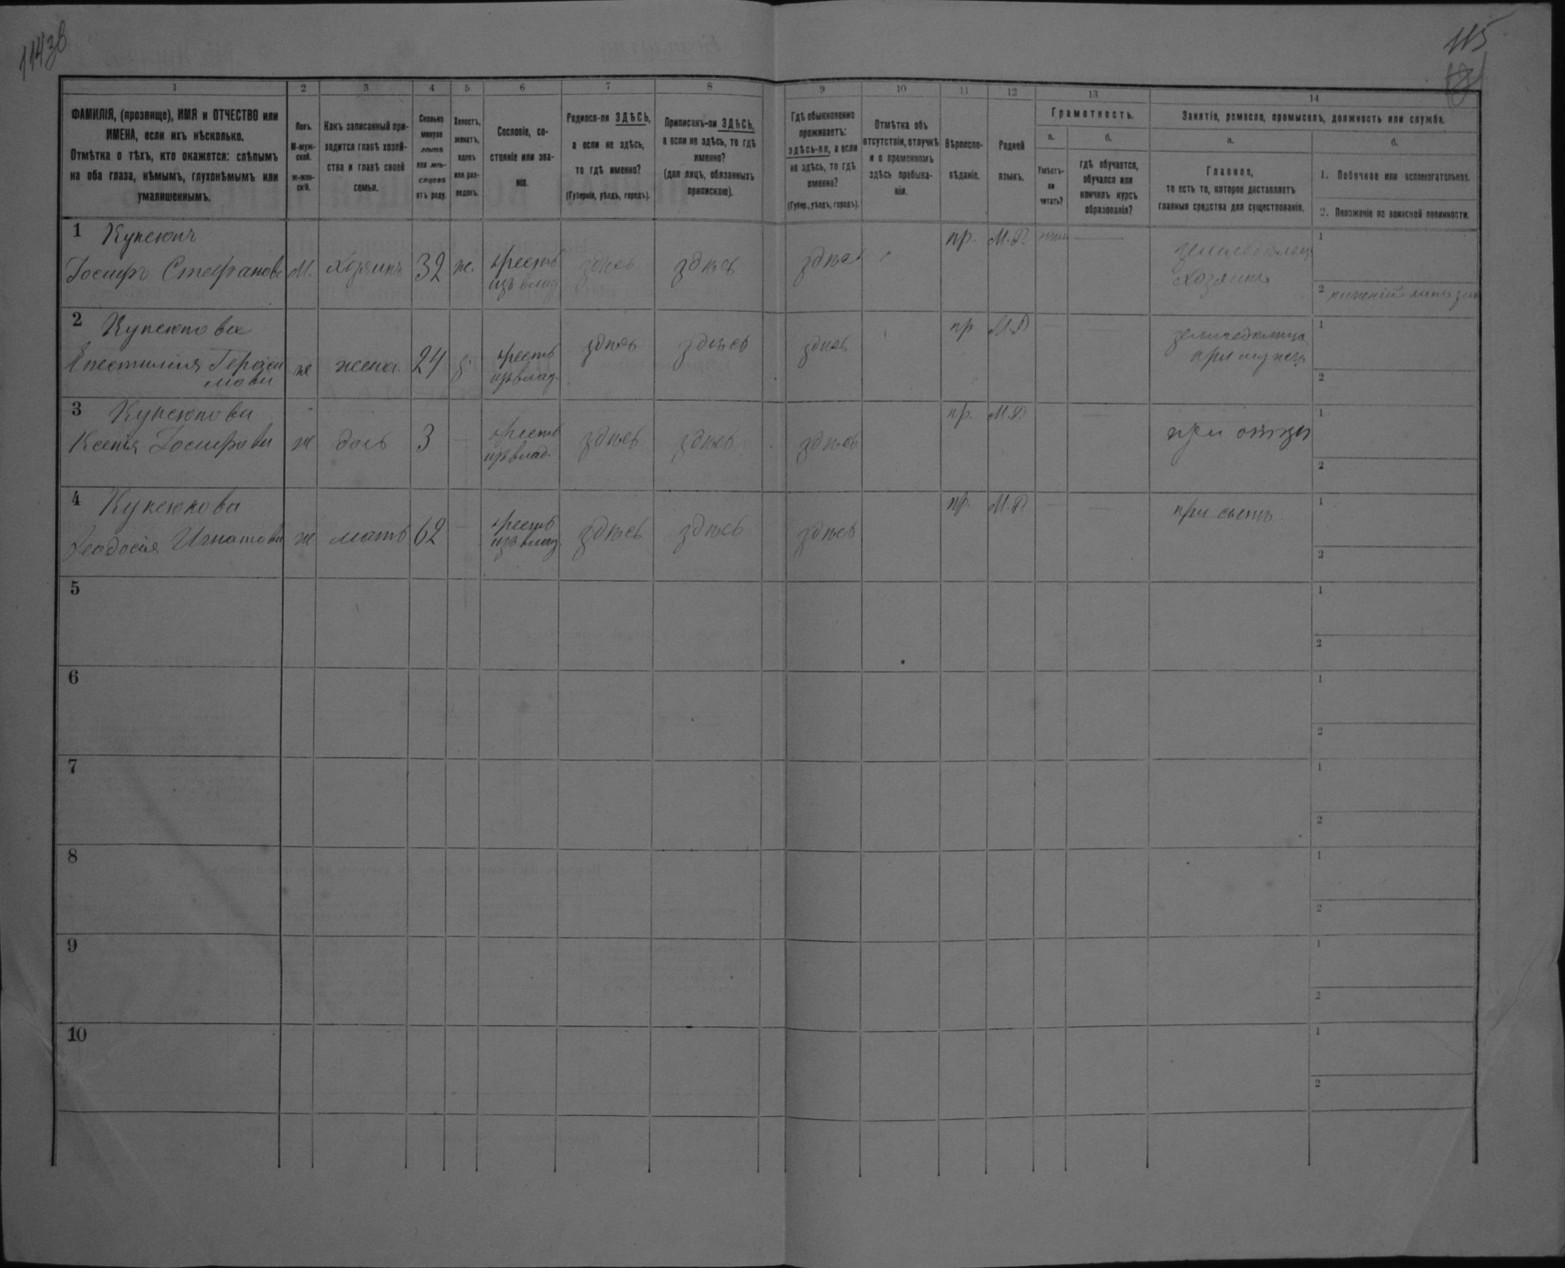 115
1 2 3 4 5 6 7 8 9 10 11 12 13 14
ФАМИЛІЯ, (прозвище), ИМЯ и ОТЧЕСТВО или
ИМЕНА, если ихъ нѣсколько.
Отмѣтка о тѣхъ, кто окажется: слѣпымъ
на оба глаза, нѣмымъ, глухонѣмымъ или
умалишеннымъ.
Полъ.
М-муж-
ской.
ж-жен-
скій.
Какъ записанный при-
ходится главѣ хозяй-
ства и главѣ своей
семьи.
Сколько
минуло
лѣтъ
или мѣс-
яцевъ
отъ роду.
Холостъ,
женатъ,
вдовъ
или раз-
веденъ.
Сословіе, со-
стояніе или зва-
ніе.
Родился-ли ЗДѢСЬ,
а если не здѣсь,
то гдѣ именно?
(Губернія, уѣздъ, городъ).
Приписанъ-ли ЗДѢСЬ,
а если не здѣсь, то гдѣ
именно?
(для лицъ, обязанныхъ
припискою).
Гдѣ обыкновенно
проживаетъ:
здѣсь-ли, а если
не здѣсь, то гдѣ
именно?
(Губер., уѣздъ, городъ).
Отмѣтка объ
отсутствіи, отлучкѣ
и о временномъ
здѣсь пребыва-
ніи.
Вѣроиспо-
вѣданіе.
Родной
языкъ.
Грамотность.
а.
Умѣетъ-
ли
читать?
б.
гдѣ обучается,
обучался или
кончилъ курсъ
образованія?
Занятіе, ремесло, промыселъ, должность или служба.
а.
Главное,
то есть то, которое доставляетъ
главныя средства для существованія.
б.
1. Побочное или вспомогательное.
2. Положеніе по воинской повинности.
1
Іосифъ Стефановъ М. хозяинъ 32 ж. крестъ изъ влад здѣсь здѣсь здѣсь пр. М.Р. земледѣлецъ хозяинъ 1 2
2
Герасимови ж жена 24 з. крестъ изъ влад. здѣсь здѣсь здѣсь пр М.Р 1 2
3
Ксенія Іосифови ж дочь 3 крестъ изъ влад. здѣсь здѣсь здѣсь пр. М.Р. при отцѣ 1 2
4
Феодосія Игнатови ж мать 62 крестъ изъ влад здѣсь здѣсь здѣсь пр. М.Р. при сынѣ 1 2
5 1 2
6 1 2
7 1 2
8 1 2
9 1 2
10 1 2